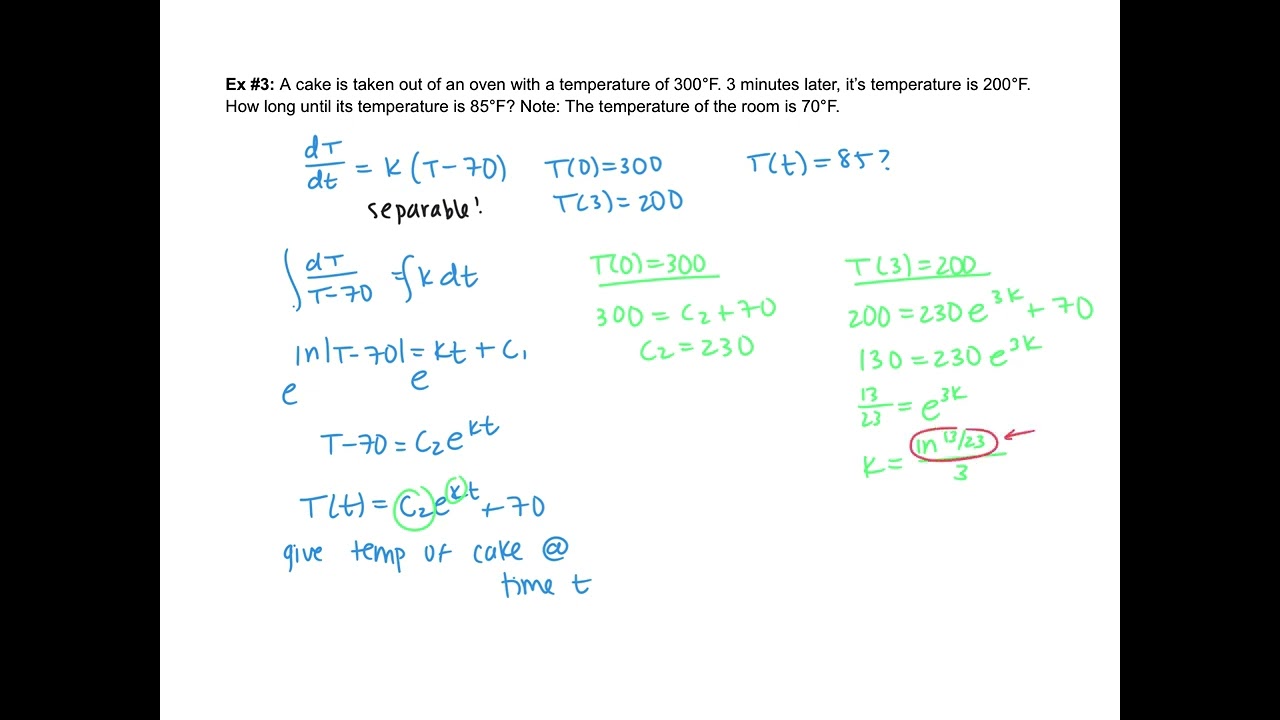 Ex #3: A cake is taken out of an oven with a temperature of 300°F. 3 minutes later, it's temperature is 200°F.
How long until its temperature is 85°F? Note: The temperature of the room is 70°F.
dT/dt = k(T-70) T(0)=300 T(t)=85?
separable! T(3)=200
∫ dT/T-70 = ∫ k dt
ln|T-70| = kt + C₁
e e
T-70 = C₂e^kt
T(t) = C₂e^kt + 70
give temp of cake @
time t
T(0)=300
300 = C₂+70
C₂ = 230
T(3)=200
200 = 230e^3k + 70
130 = 230e^3k
13/23 = e^3k
k = ln 13/23 / 3